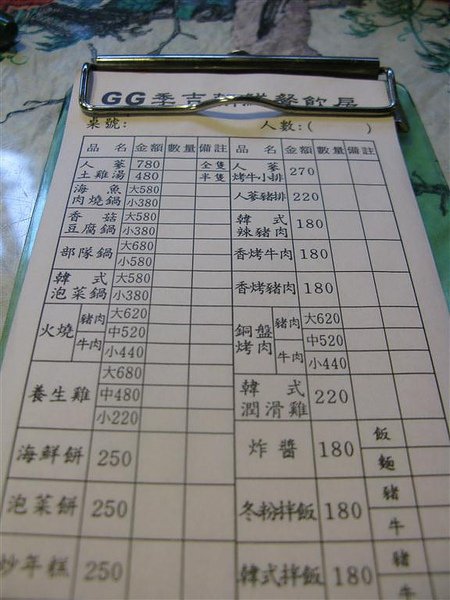 GG季吉朝鮮餐飲居
桌號: 人數:( )
品名 金額 數量 備註 品名 金額 數量 備註
人蔘土雞湯 780 全隻 人蔘烤牛小排 270
480 半隻
海魚肉燒鍋 大580 人蔘豬排 220
小380
香菇豆腐鍋 大580 韓式辣豬肉 180
小380
部隊鍋 大680 香烤牛肉 180
小580
韓式泡菜鍋 大580 香烤豬肉 180
小380
火燒 豬肉 牛肉 大620 銅盤烤肉 豬肉 牛肉 大620
中520 中520
小440 小440
養生雞 大680 韓式潤滑雞 220
中480
小220
海鮮餅 250 炸醬 180 飯
麵
泡菜餅 250 冬粉拌飯 180 豬
牛
炒年糕 250 韓式拌飯 180 豬
牛